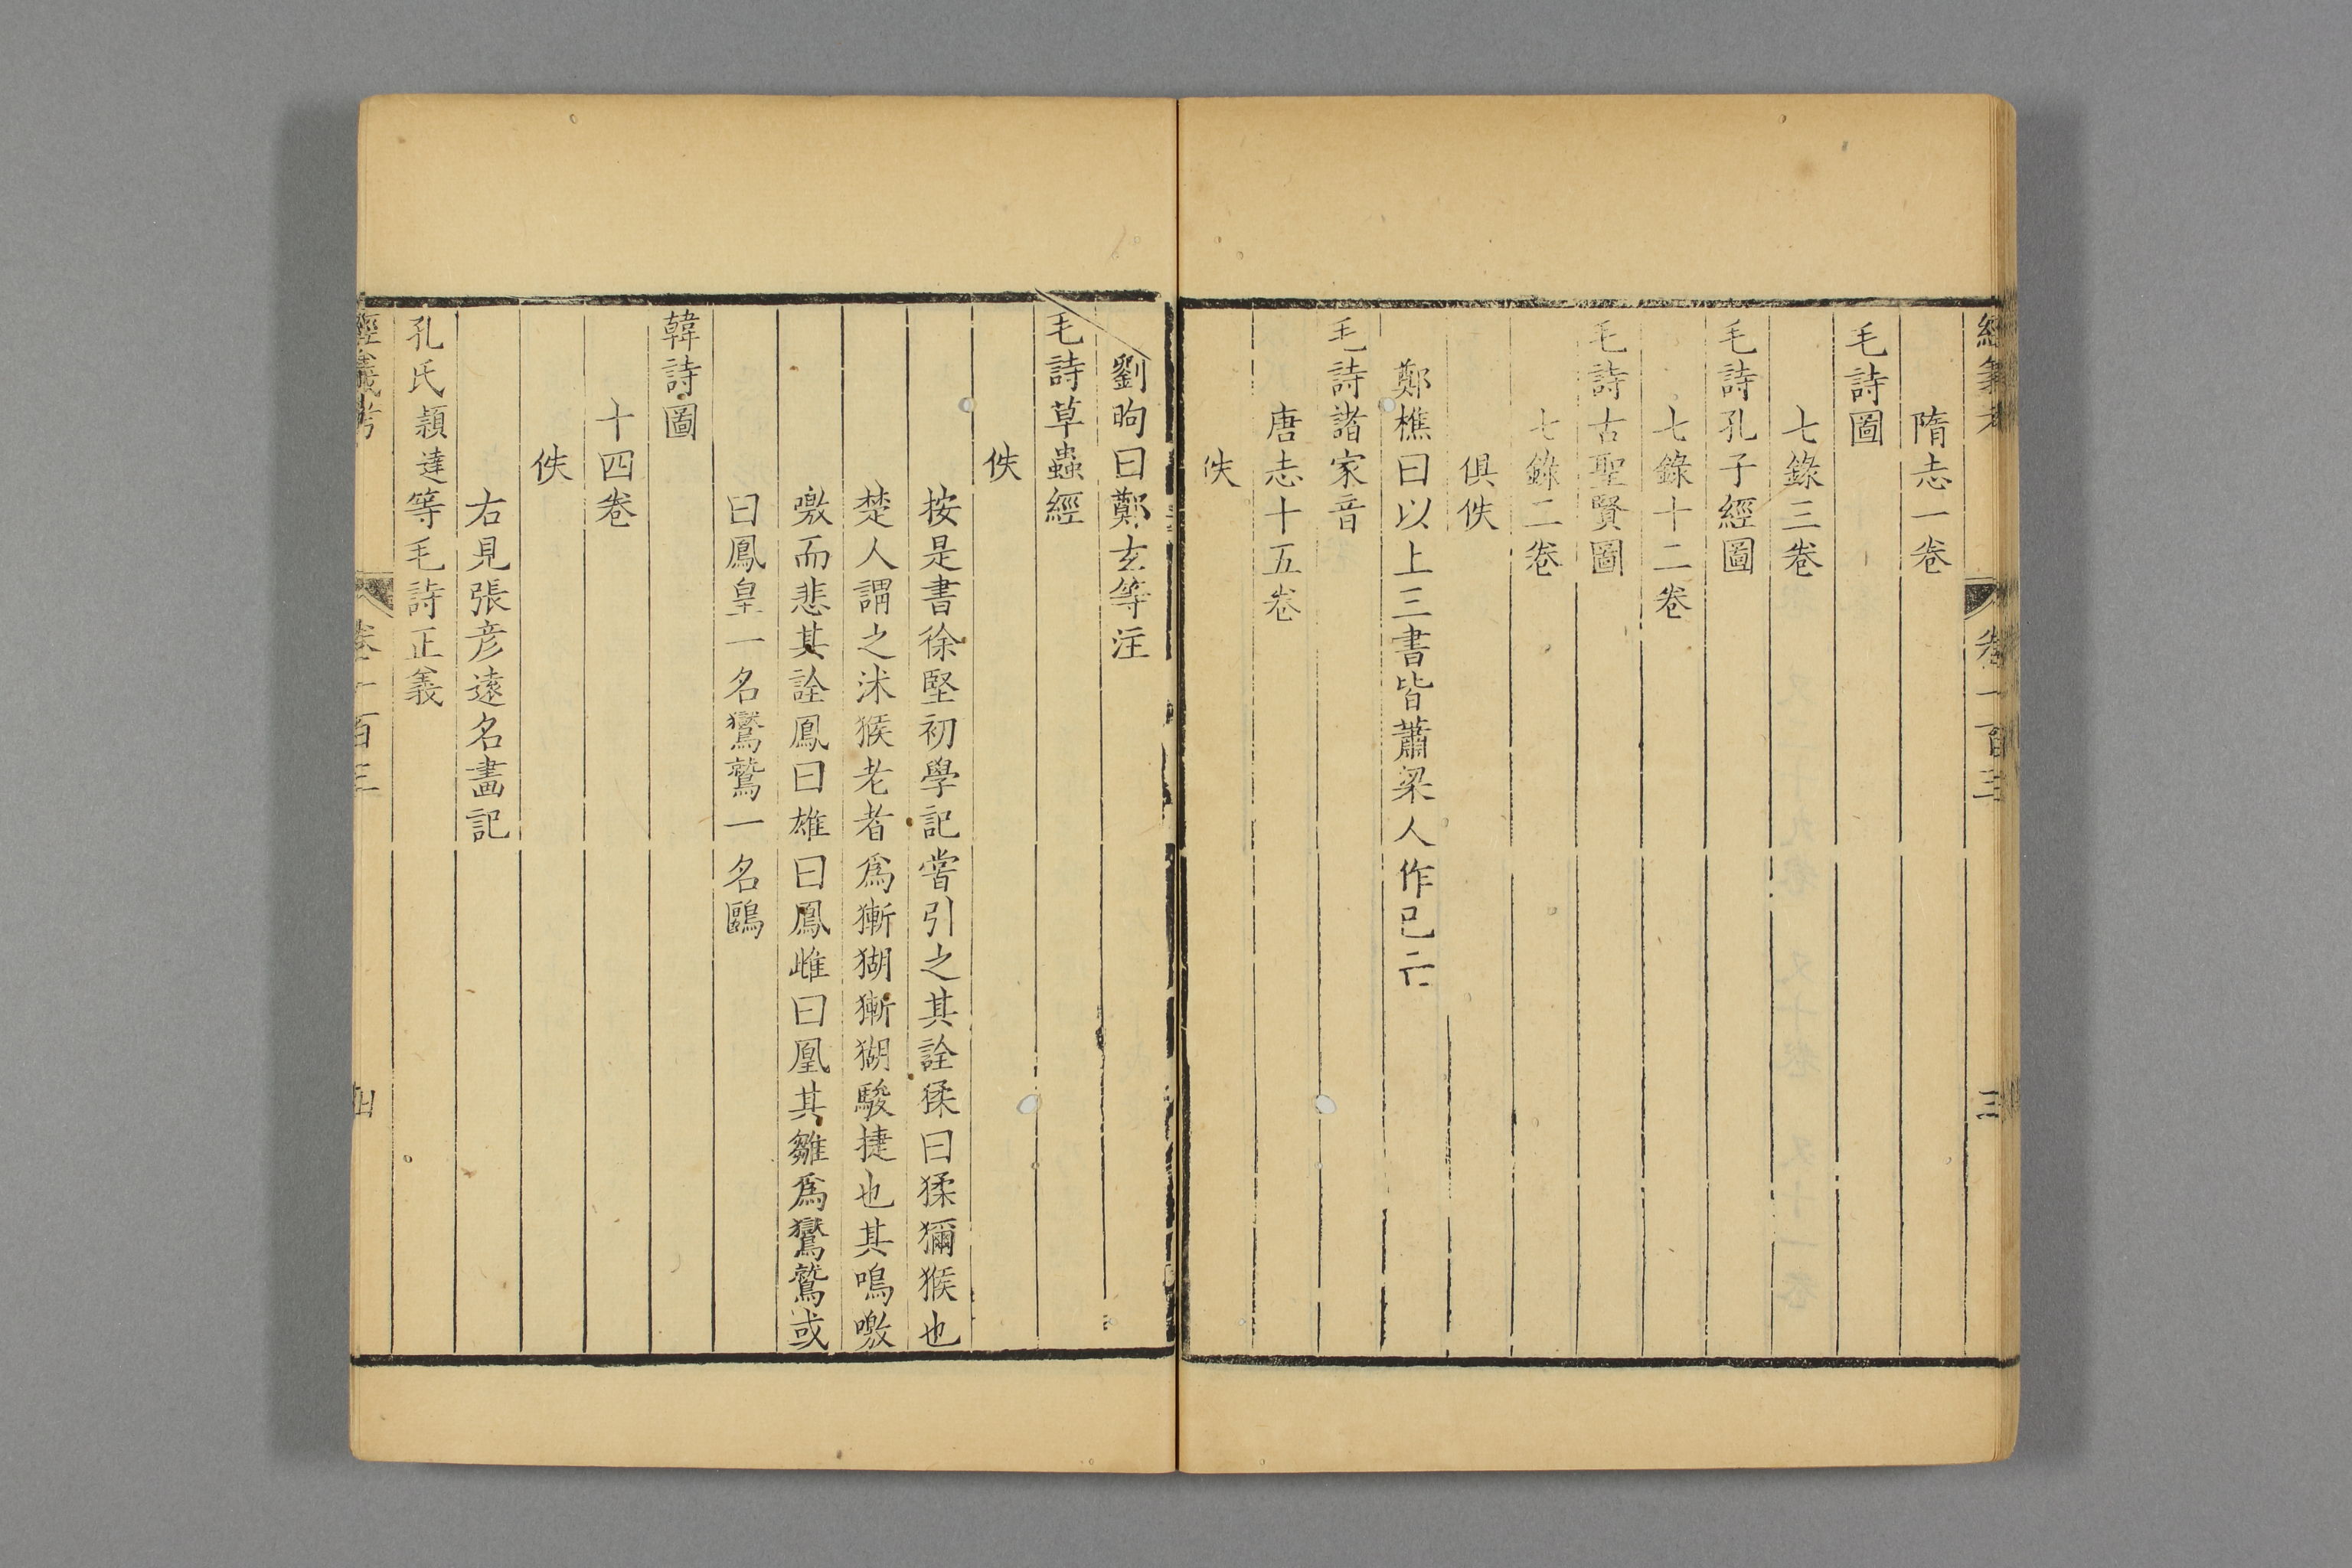 經義考 卷一百三 三
隋志一卷
毛詩圖
七錄三卷
毛詩孔子經圖
七錄十二卷
毛詩古聖賢圖
七錄二卷
俱佚
鄭樵曰以上三書皆蕭梁人作已亡
毛詩諸家音
唐志十五卷
佚
劉昫曰鄭玄等注
毛詩草蟲經
佚
按是書徐堅初學記嘗引之其詮猱曰猱獼猴也
楚人謂之沐猴老者爲獑猢獑猢駿捷也其鳴噭
噭而悲其詮鳳曰雄曰鳳雌曰凰其雛爲鸑鷟或
曰鳳皇一名鸑鷟一名鷗
韓詩圖
十四卷
佚
右見張彦遠名畫記
孔氏穎達等毛詩正義
經義考 卷一百三 四